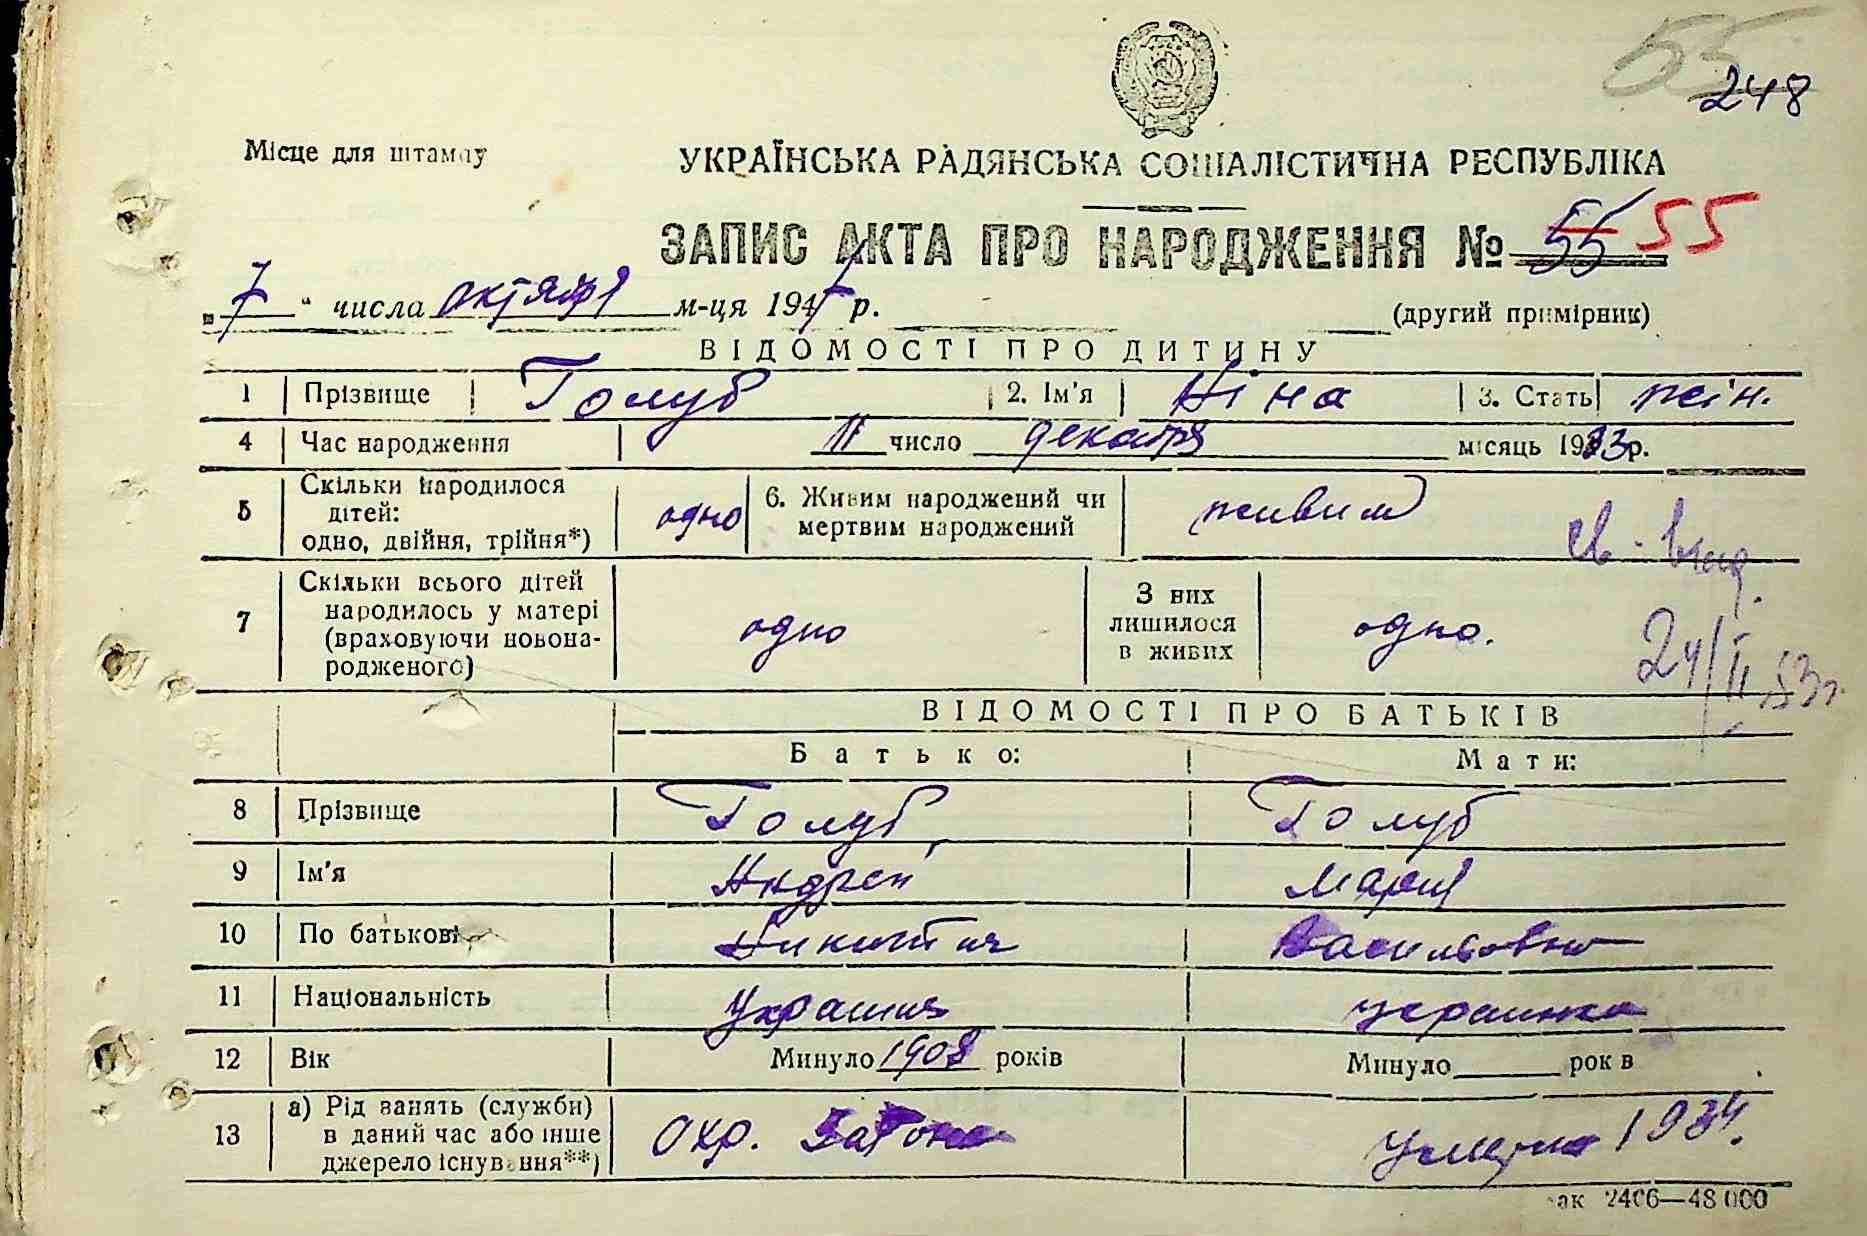 55
248
Місце для штампу
УКРАЇНСЬКА РАДЯНСЬКА СОЦІАЛІСТИЧНА РЕСПУБЛІКА
ЗАПИС АКТА ПРО НАРОДЖЕННЯ № 55 55
„7“ числа октября м-ця 1947 р.
(другий примірник)
ВІДОМОСТІ ПРО ДИТИНУ
1 Прізвище Голуб 2. Ім'я Ніна 3. Стать жін.
4 Час народження число декабря місяць 1933 р.
5 Скільки народилося дітей: одно, двійня, трійня*) одно 6. Живим народжений чи мертвим народжений живим
7 Скільки всього дітей народилось у матері (враховуючи новонародженого) одно З них лишилося в живих одно.
св. выд.
24/II 53г
ВІДОМОСТІ ПРО БАТЬКІВ
Батько: Мати:
8 Прізвище Голуб Голуб
9 Ім'я Андрей Мария
10 По батькові Никитич Васильовна
11 Національність украинец украинка
12 Вік Минуло 1908 років Минуло рок в
13 а) Рід занять (служби) в даний час або інше джерело існування**) Охр. Затона Умерла 1934.
ак 2406—48 000